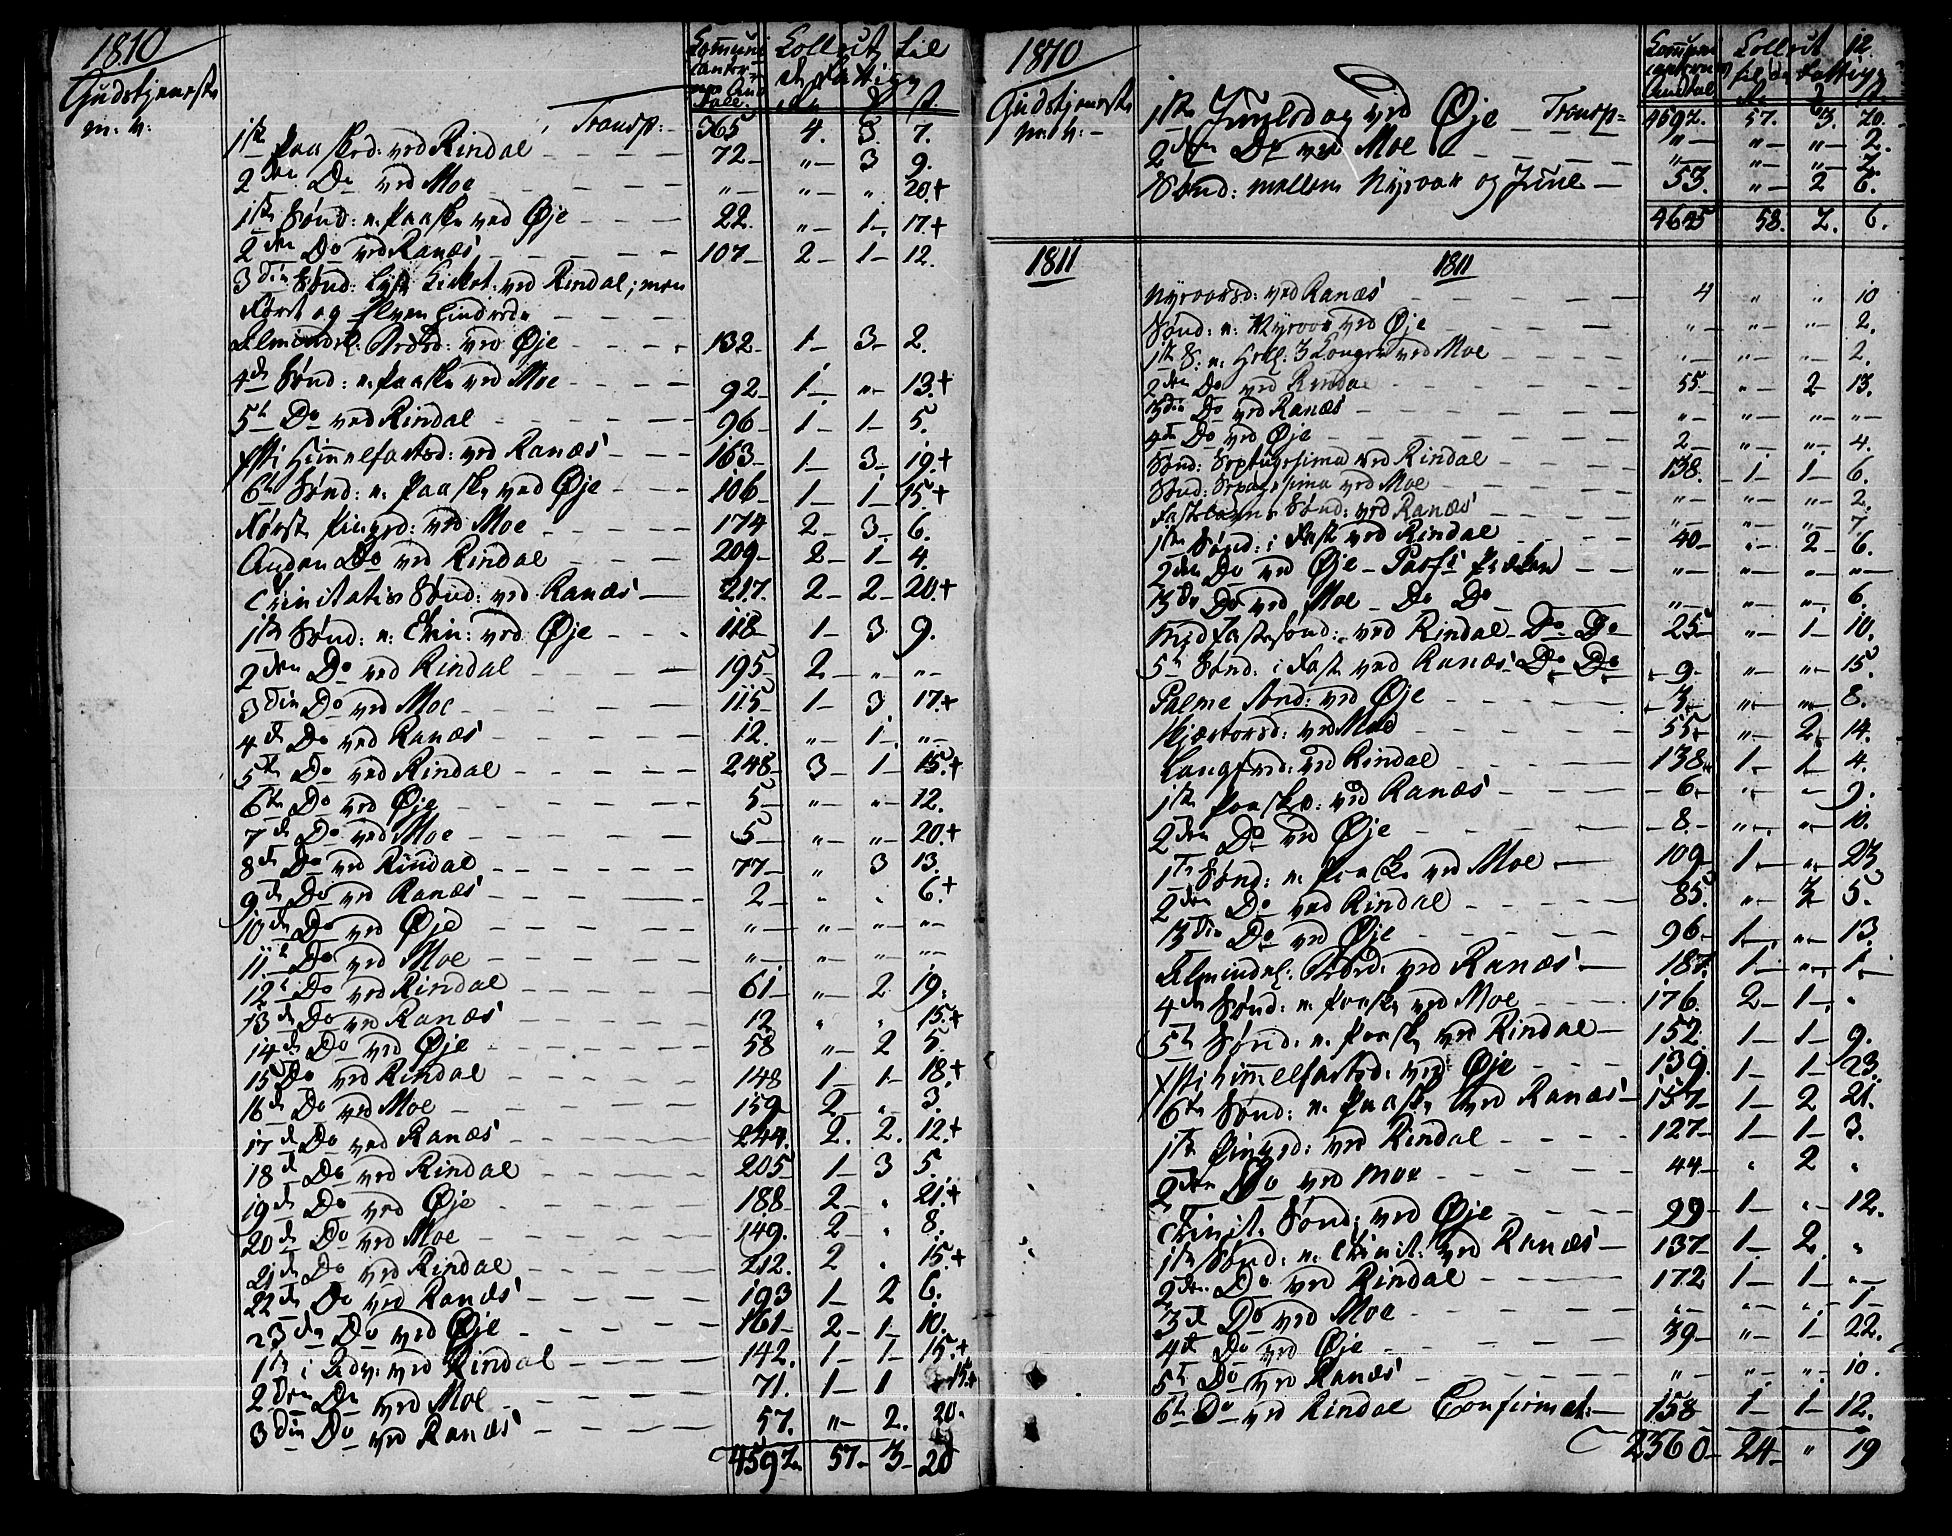 1810
Gudstjeneste
m. v.
Communicanternes Antal
Collect til
de Fattige
rd. # s.
Transp: 365 4. 3. 7.
1ste Paasked: ved Rindal 72 " 3 9.
2den Do ved Moe " " " 20+
1ste Sønd: n. Paaske ved Øje 22. " 1 17+
2den Do ved Ranæs 107 2 1 12.
3die Sønd: lyst Kirket: ved Rindal; men
Præst og Elven hindrede
Almindel: Bedsd: ved Øje 132 1 3 2.
4de Sønd: n. Paaske ved Moe 92 1 " 13+
5te Do ved Rindal 96 1 1 5.
Xsti Himmelfartsd: ved Ranæs 163 1 3 19+
6te Sønd: n. Paaske ved Øje 106 1 1 15+
Første Pingsd: ved Moe 174 2 3 6.
Anden Do ved Rindal 209 2 1 4.
Trinitatis Sønd: ved Ranæs 217. 2 2 20+
1ste Sønd: n. Trin: ved Øje 118 1 3 9.
2den Do ved Rindal 195 2 " "
3die Do ved Moe 115 1 3 17+
4de Do ved Ranæs 12. " 1 "
5te Do ved Rindal 248 3 1 15+
6te Do ved Øje 5 " " 12.
7de Do ved Moe 5 " " 20+
8de Do ved Rindal 77 " 3 13.
9de Do ved Ranæs 2 " " 6+
10de Do ved Øje " " " "
11te Do ved Moe " " " "
12te Do ved Rindal 61 " 2 19.
13de Do ved Ranæs 12 " " 15+
14de Do ved Øje 58 " 2 5.
15 Do ved Rindal 148 1 1 18+
16de Do ved Moe 159 2 " 3.
17de Do ved Ranæs 244. 2. 2. 12+
18de Do ved Rindal 205 1 3 5.
19de Do ved Øje 188 2 " 21+
20de Do ved Moe 149. 2 " 8.
21de Do ved Rindal 212. 2 " 15+
22de Do ved Ranæs 193 1 2 6.
23de Do ved Øje 161 2 1 10.
1ste i Adv: ved Rindal 142. 1 1 15+
2den Do ved Moe 71. 1 1 15+
3die Do ved Ranæs 57. " 2. 20.
4597 57 3 20
1810
Gudstjeneste
m. v.
Communicanternes Antal
Collect
til de Fattige
rd. # s.
1ste Juuledag ved Øje Transp: 4592. 57. 3. 20.
2den Do ved Moe " " " 2.
Sønd: mellem Nyeaar og Juul 53. " 2 6.
4645 58. 2. 6.
1811
1811
Nyeaarsd: ved Ranæs 4 " " 10
Sønd: n. Nyeaar ved Øje " " " 2.
1ste S. n. Hell: 3 Konger ved Moe " " " 2.
2den Do ved Rindal 55 " 2 13.
3die Do ved Ranæs " " " "
4de Do ved Øje 2 " " 4.
Sønd: Septuagesima ved Rindal 138. 1 1 6.
Sønd: Sexagesima ved Moe " " " 2.
Fastelavns Sønd: ved Ranæs " " " 7.
1ste Sønd: i Fast ved Rindal 40 " 2 6.
2den Do ved Øje Passi Prædken " " " "
3die Do ved Moe Do Do " " " 6.
Midfastesønd: ved Rindal Do Do 25 " 1 10.
5te Sønd: i Fast ved Ranæs Do Do 9 " " 15.
Palme Sønd: ved Øje 3 " " 8.
Skjærtorsd: ved Moe 55 " 2 14.
Langfred: ved Rindal 138 1 1 4.
1ste Paasked: ved Ranæs 6 " " 9.
2den Do ved Øje 8 " " 10.
1ste Sønd: n. Paaske ved Moe 109 1 " 23
2den Do ved Rindal 85. " 3 5.
3die Do ved Øje 96 1 " 13
Almindel. Bedsd: ved Ranæs 187. 1 " 1
4de Sønd: n. Paaske ved Moe 176. 2 1 "
5te Sønd: n. Paaske ved Rindal 152. 1 1 9.
Xsti himmelfartsd: ved Øje 139. 1 1 23.
6te Sønd: n. Paaske ved Ranæs 157 1 2 21.
1ste Pingsd: ved Rindal 127 1 1 3.
2den Do ved Moe 44 " 2 "
Trinit. Sønd: ved Øje 99 1 " 12.
1ste Sønd: n. Trinit: ved Ranæs 137 1 2. "
2den Do ved Rindal 172 1 1 "
3de Do ved Moe " " " 1
4de Do ved Øje 39 " 1 22.
5te Do ved Ranæs " " " 10.
6te Do ved Rindal Confirmat: 158 1 1 12.
2360 24 " 19